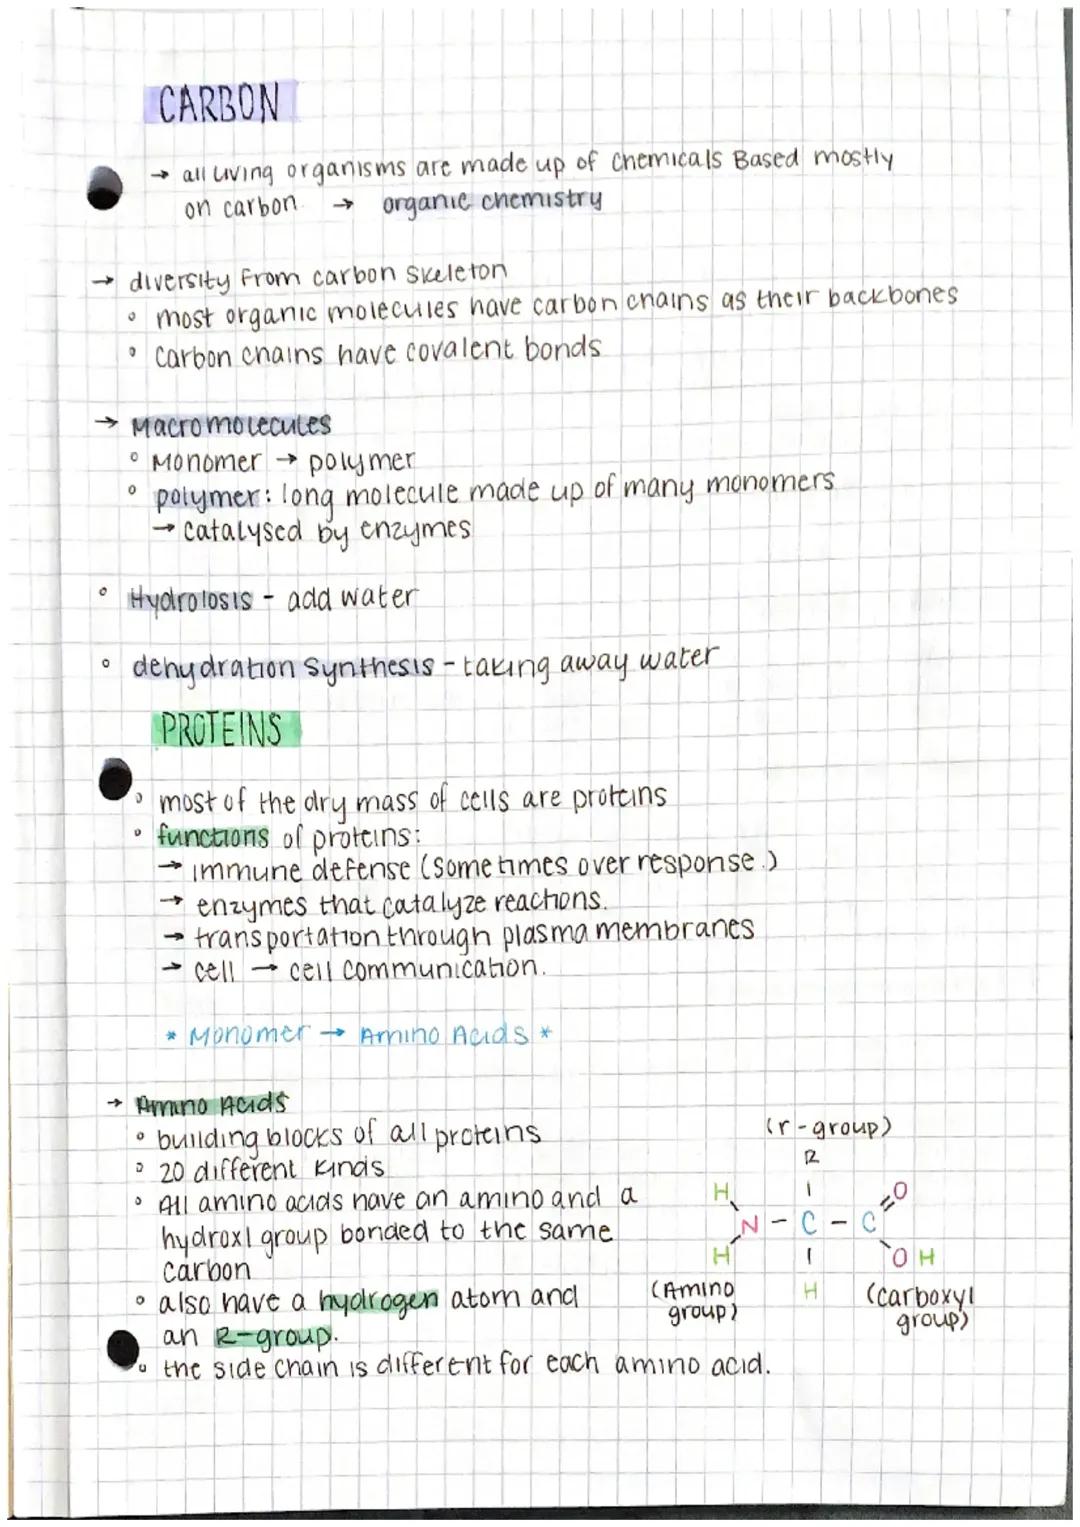 CARBON
→ all living organisms are made up of chemicals Based mostly
on carbon → organic chemistry
→ diversity from carbon skeleton
° most organic molecules have carbon chains as their backbones
° Carbon chains have covalent bonds
→ Macromolecules
° Monomer → polymer
° polymer: long molecule made up of many monomers
→ catalysed by enzymes
° Hydrolosis - add water
° dehydration synthesis - taking away water
PROTEINS
° most of the dry mass of cells are proteins
° functions of proteins:
→ immune defense (sometimes over response.)
→ enzymes that catalyze reactions.
→ transportation through plasma membranes
→ cell → cell communication.
* Monomer → Amino Acids *
→ Amino Acids
° building blocks of all proteins
° 20 different kinds
° All amino acids have an amino and a
hydroxl group bonded to the same
carbon
° also have a hydrogen atom and
an R-group.
° the side chain is different for each amino acid.
(r-group)
R
H O
N - C - C
H O H
(Amino H (carboxyl
group) group)